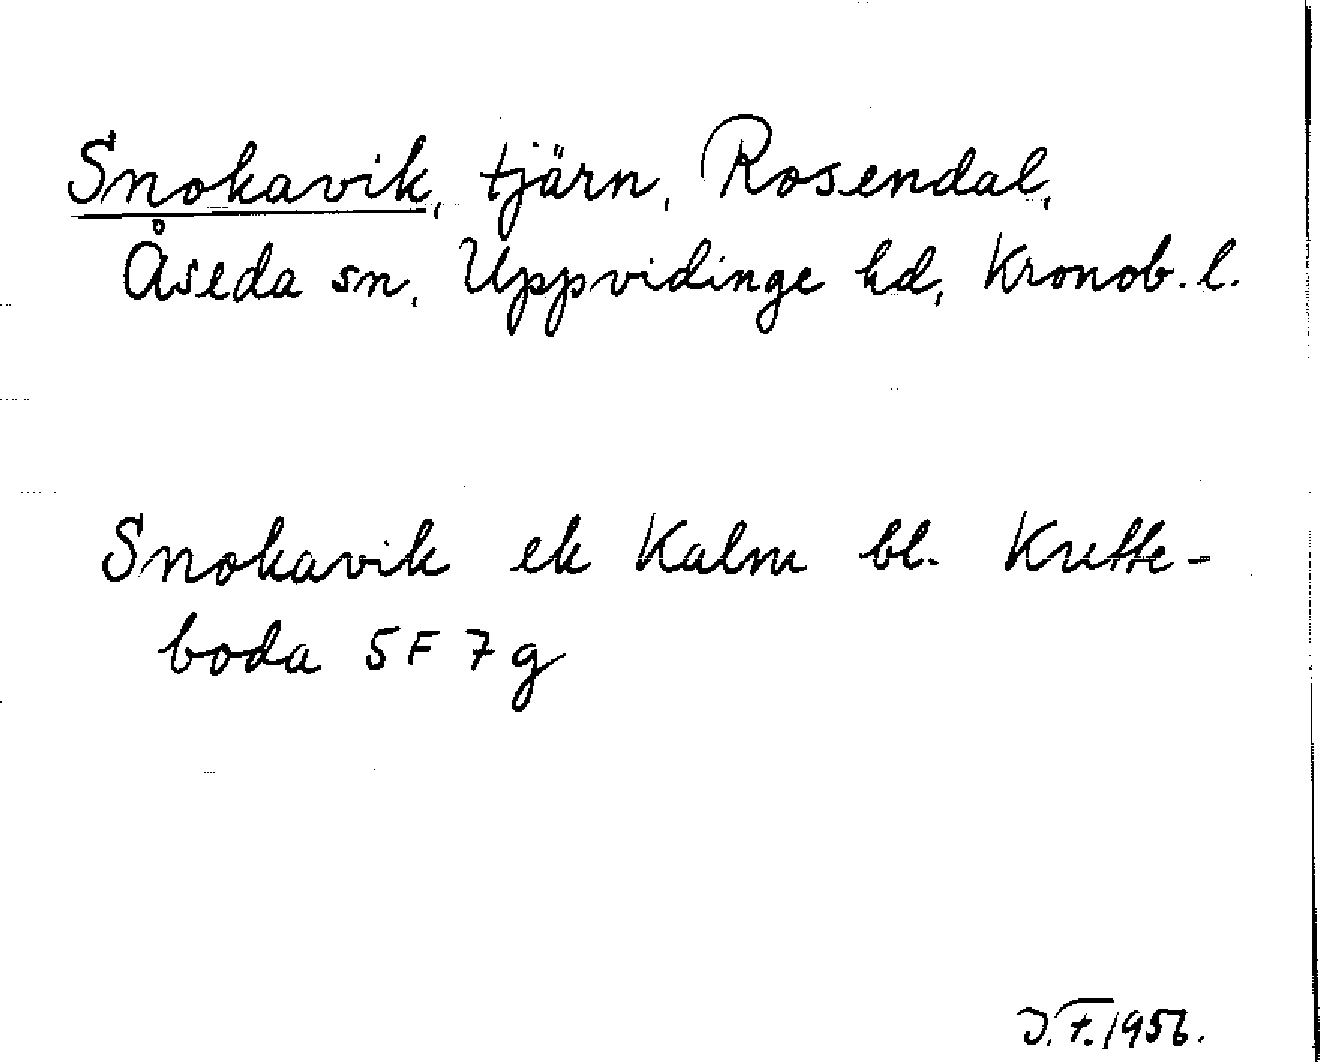 Snokavik, tjärn, Rosendal,
Åseda sn, Uppvidinge hd, Kronob. l.
Snokavik ek Kalm bl. Krette-
boda 5F 7g
J.F. 1956.